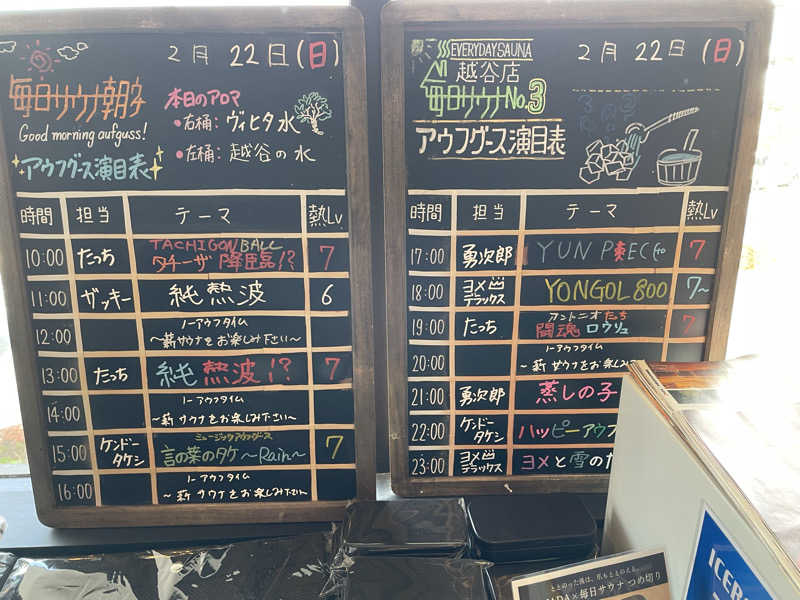 2月 22日(日)
毎日サウナ朝礼
Good morning aufguss!
アウフグース演目表
本日のアロマ
・右桶：ヴィヒタ水
・左桶：越谷の水
時間 担当 テーマ 熱Lv
10:00 たっち TACHIGONBALL タチーザ降臨!? 7
11:00 ガッキー 純熱波 6
12:00 ノーアウフタイム
〜薪サウナをお楽しみ下さい〜
13:00 たっち 純熱波!? 7
14:00 ノーアウフタイム
〜薪サウナをお楽しみ下さい〜
15:00 ケンドータケシ ミュージックアウフグース
言の葉のタケ〜Rain〜 7
16:00 ノーアウフタイム
〜薪サウナをお楽しみ下さい〜
2月 22日(日)
EVERYDAY SAUNA
越谷店
毎日サウナNo.3
アウフグース演目表
時間 担当 テーマ 熱Lv
17:00 勇次郎 YUN P東EC 7
18:00 ヨメ デラックス YONGOL 800 7〜
19:00 たっち アントニオたっち
闘魂ロウリュ 7
20:00 ノーアウフタイム
〜薪サウナをお楽しみ
21:00 勇次郎 蒸しの子
22:00 ケンドータケシ ハッピーアウフ
23:00 ヨメ デラックス ヨメと雪の
ととのった後は、爪もととのえる。
×毎日サウナ つめ切り
ICE